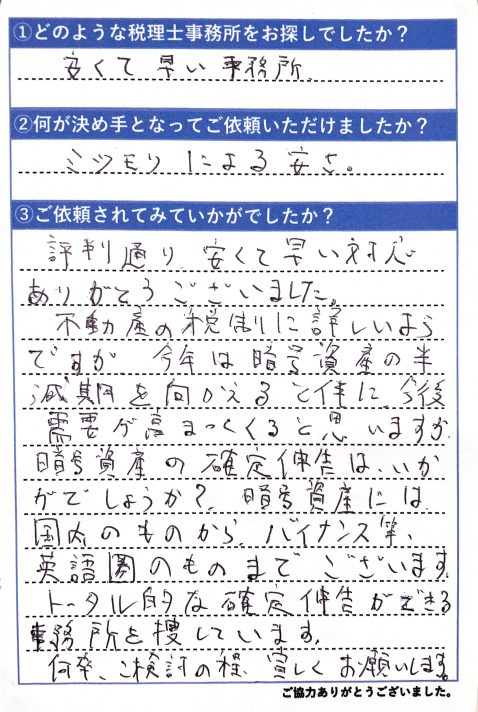 ①どのような税理士事務所をお探しでしたか？
安くて早い事務所。
②何が決め手となってご依頼いただけましたか？
ミツモリによる安さ。
③ご依頼されてみていかがでしたか？
評判通り、安くて早い対応
ありがとうございました。
不動産の税制に詳しいよう
ですが、今年は暗号資産の半
減期を向かえると伴に、今後
需要が高まってくると思いますが、
暗号資産の確定伸告は、いか
がでしょうか？、暗号資産には、
国内のものから、バイナンス等、
英語圏のものまでございます。
トータル的な確定伸告ができる
事務所を捜しています。
何卒、ご検討の程、宜しくお願いします。
ご協力ありがとうございました。